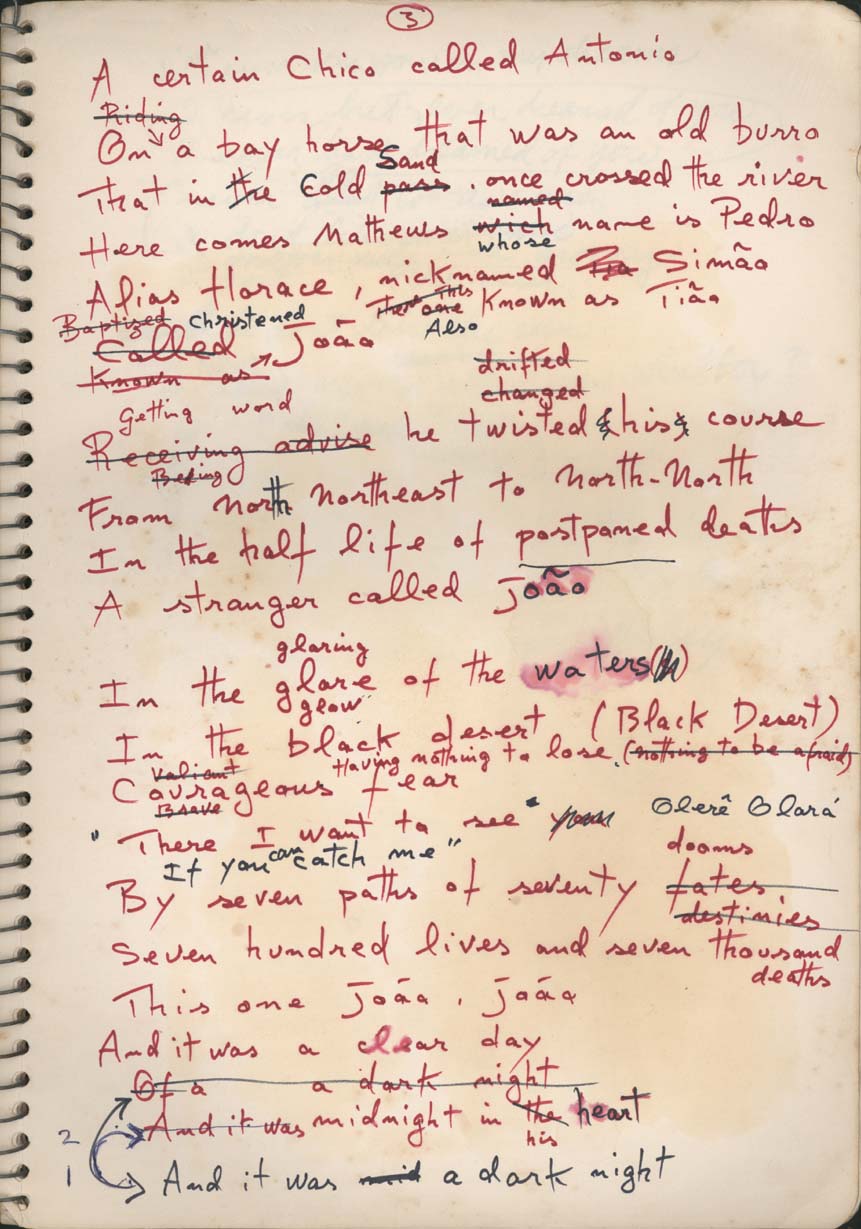 3
A certain Chico called Antonio
Riding
On a bay horse that was an old burro
Sand
That in the Cold pass, once crossed the river
named
Here comes Mathews wich name is Pedro
whose
Alias Horace, nicknamed Simão
Baptized Christened This one Known as Tião
Also
Called João
Known as
drifted
changed
Getting word
Receiving advise he twisted his course
From north northeast to North-North
In the half life of postponed deaths
A stranger called João
glaring
In the glare of the waters
glow
In the black desert (Black Desert)
Valiant Having nothing to lose. (nothing to be afraid)
Courageous fear
Brave
"There I want to see" Olerê Olará
If you can catch me"
dooms
By seven paths of seventy fates
destinies
Seven hundred lives and seven thousand
deaths
This one Joáa, Joáa
And it was a clear day
Of a a dark night
And it was midnight in the heart
2
his
1 And it was mid a dark night